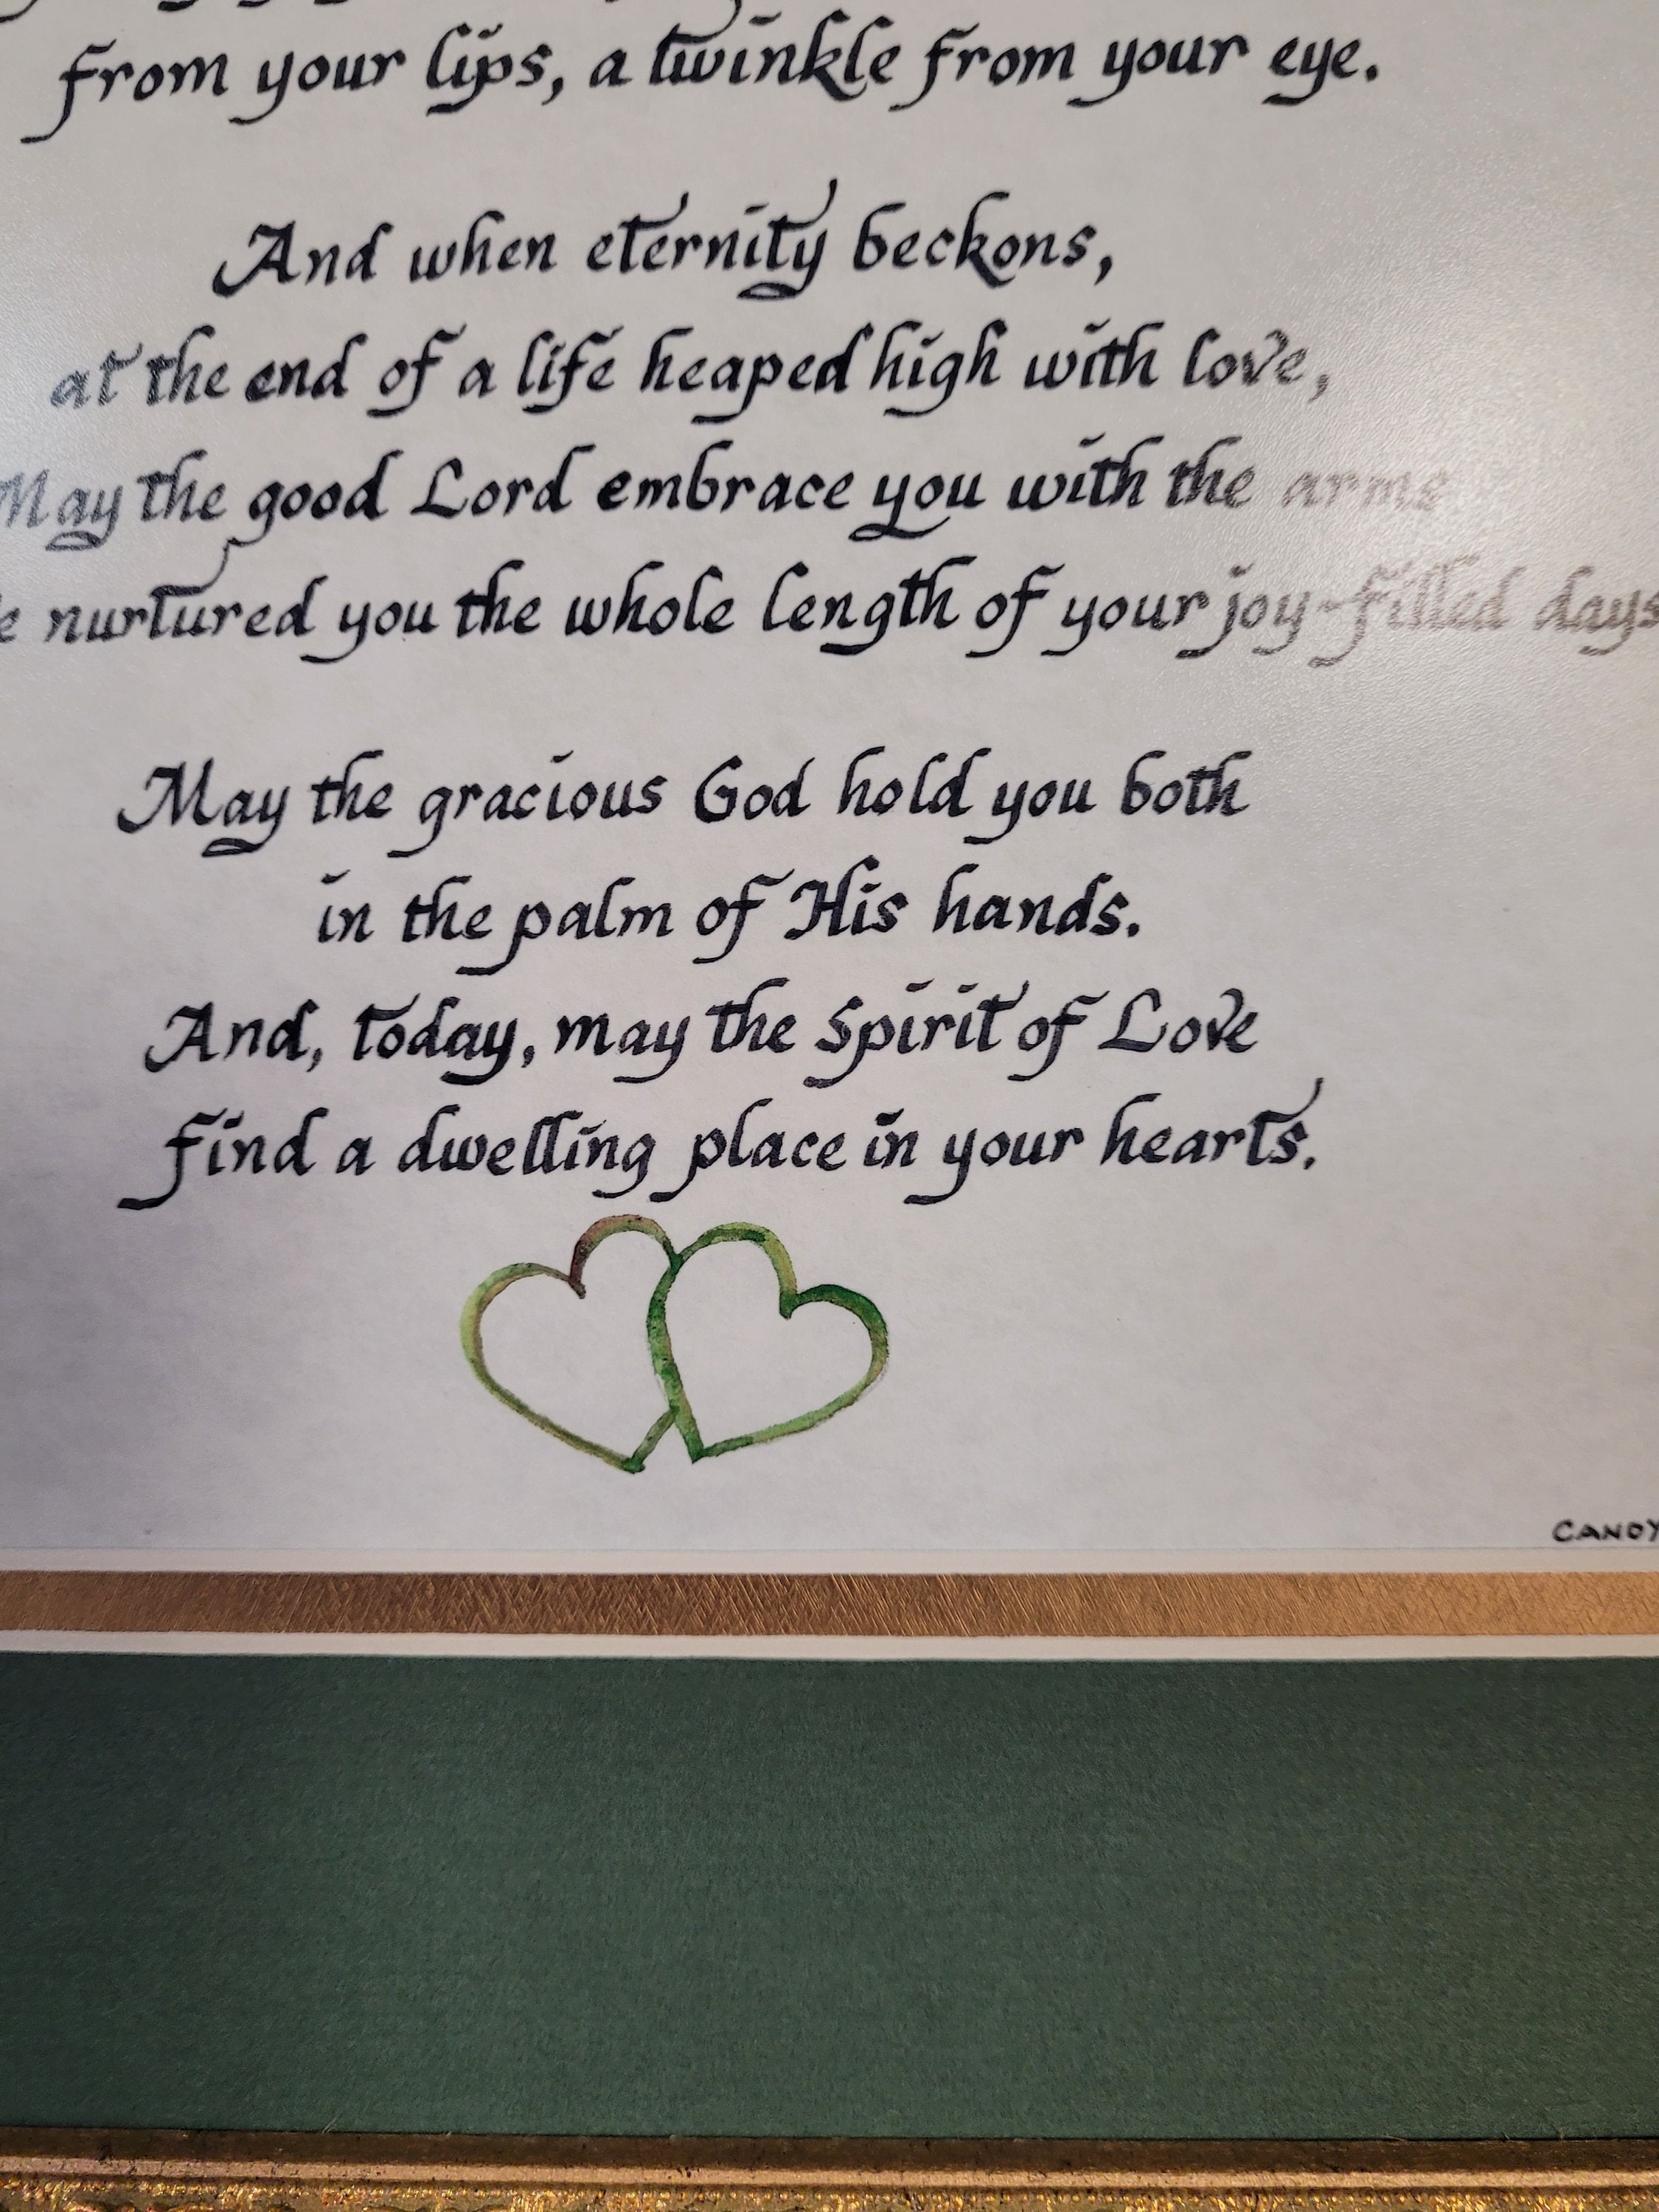 from your lips, a twinkle from your eye.
And when eternity beckons,
at the end of a life heaped high with love,
May the good Lord embrace you with the arms
nurtured you the whole length of your joy-filled days
May the gracious God hold you both
in the palm of His hands.
And, today, may the Spirit of Love
find a dwelling place in your hearts.
CANDY